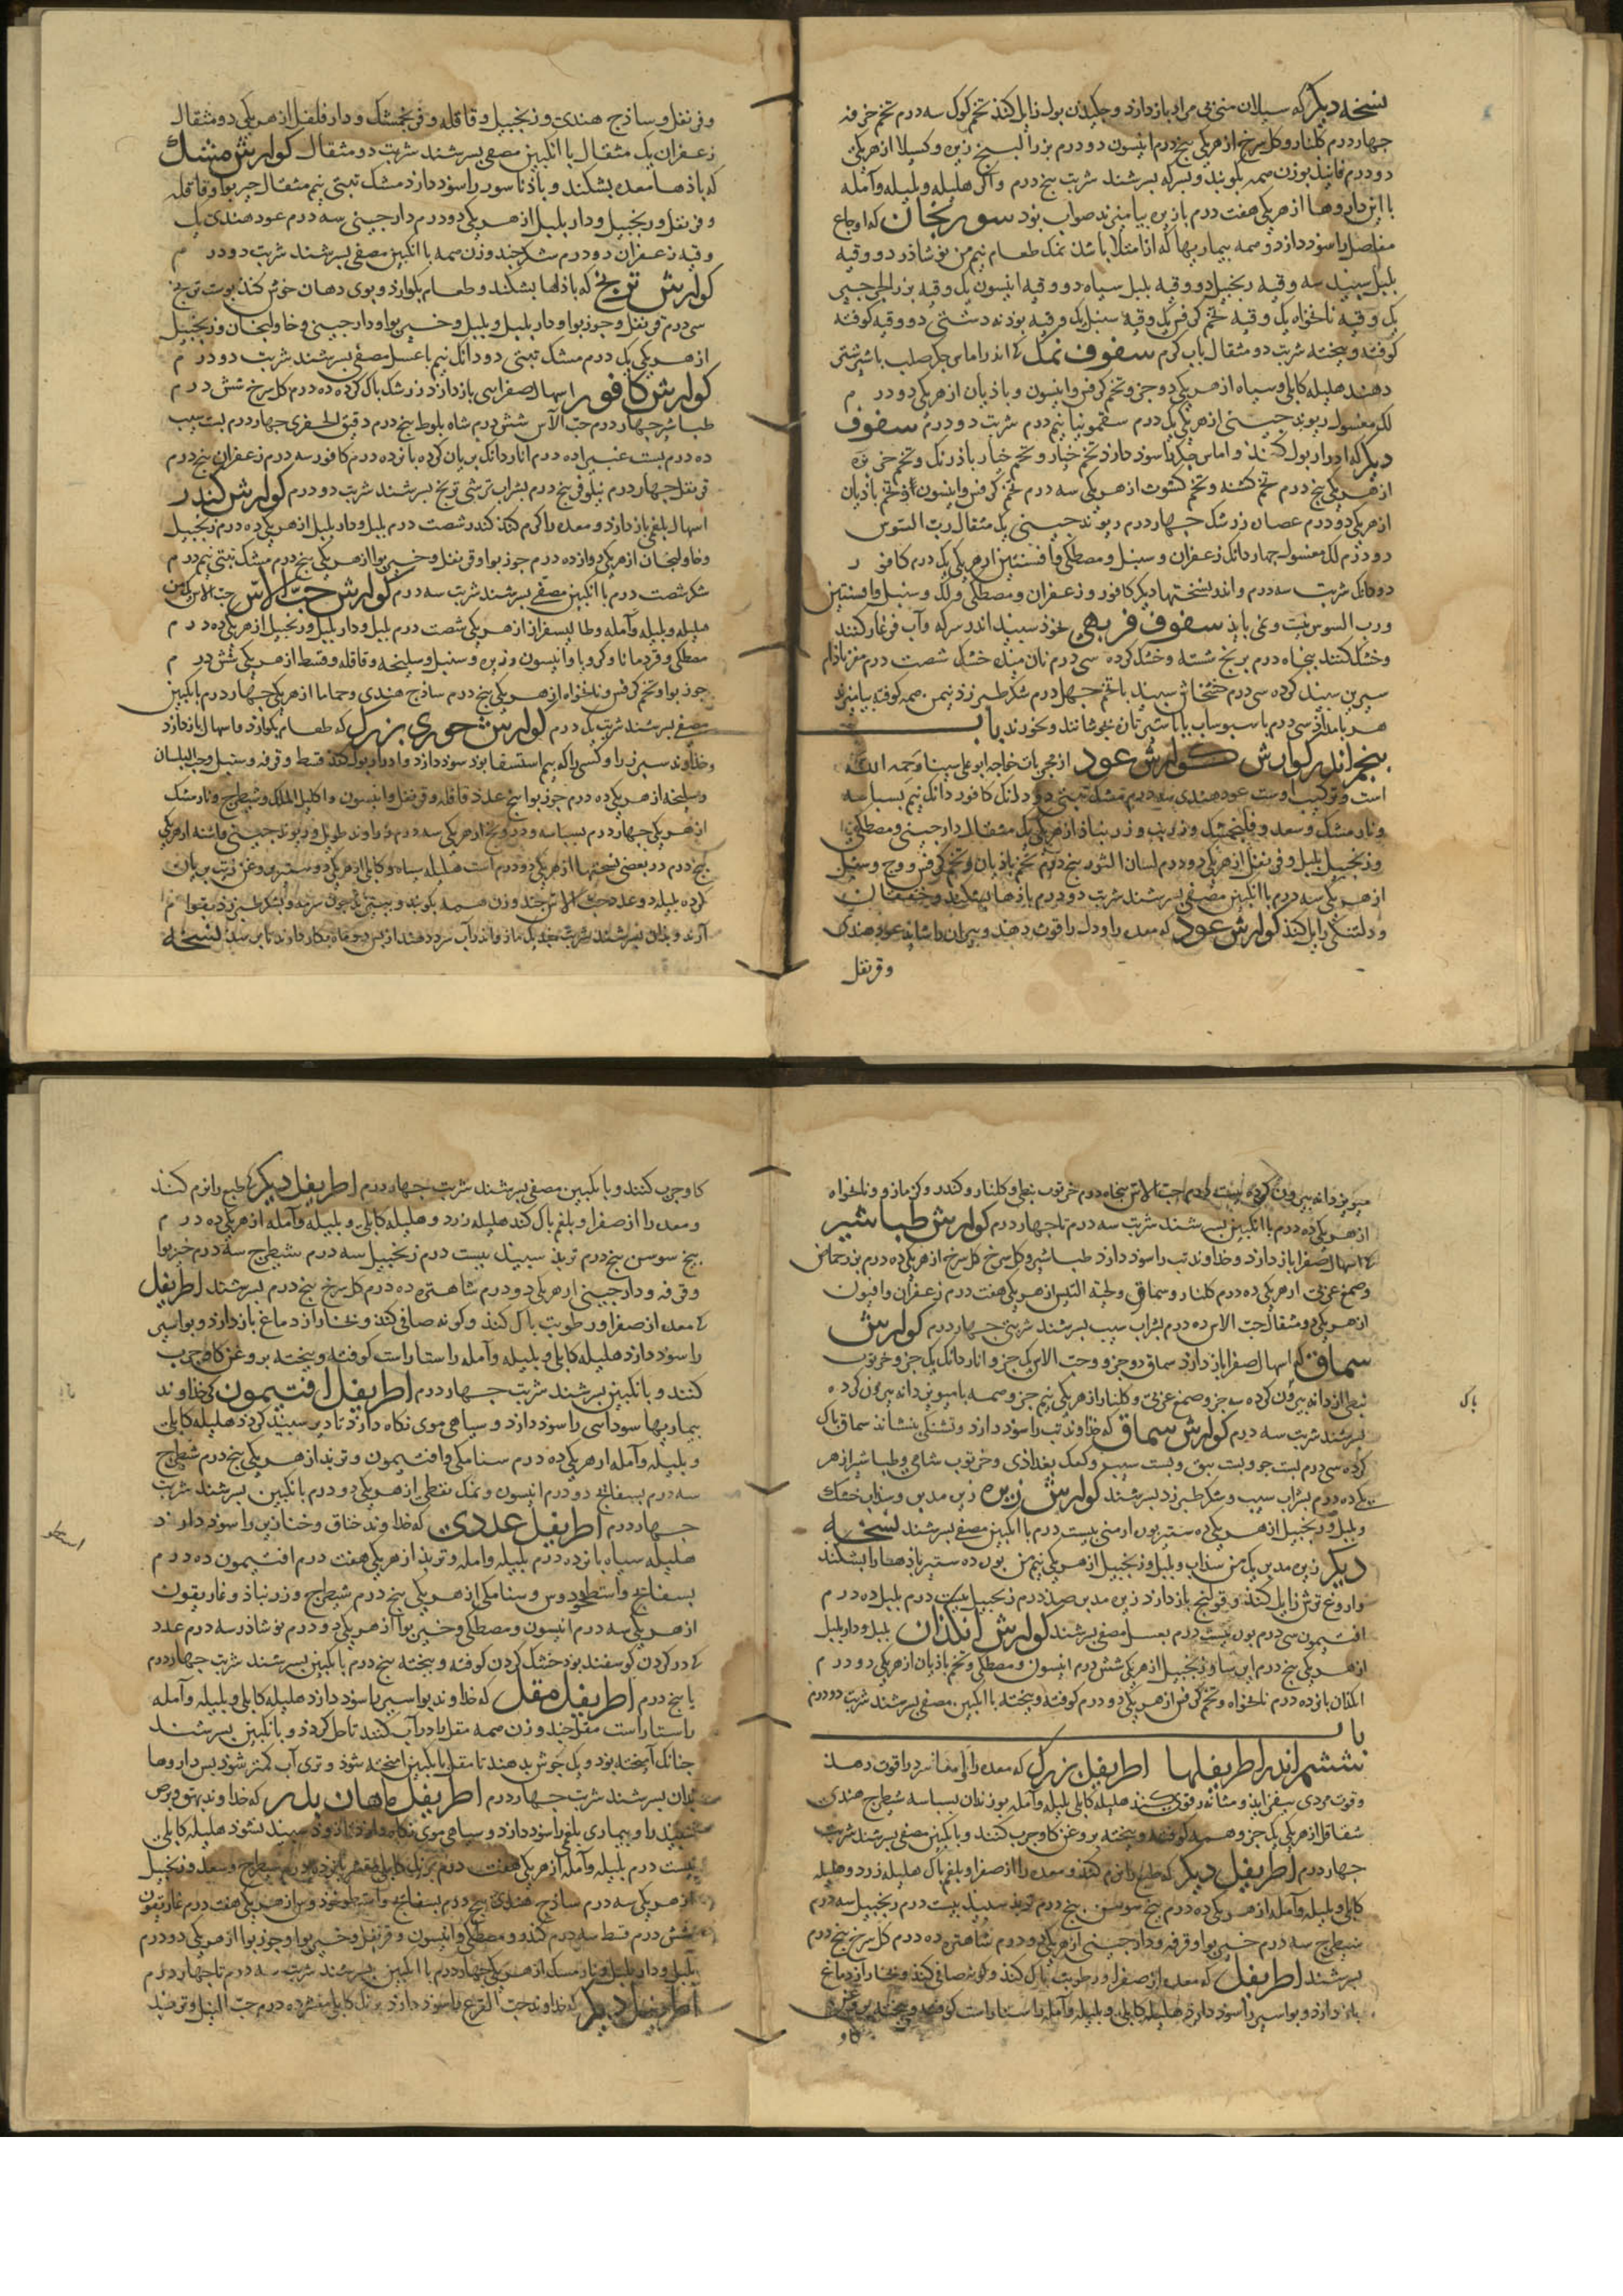 نسخه دیگر که سیلان منی بی مراد باز دارد و چکیدن بول زایل کند تخم کوک سه درم تخم خرفه
چهار درم کلنار و کل سرخ از هر یکی پنج درم انیسون دو درم بزر البنج زیره و کسیلا از هر یکی
دو درم فانیذ بوزن همه بکوبند و بسرکه بسرشند شربت پنج درم و اکر هلیله و بلیله و آمله
با این داروها از هر یکی هفت درم بازین بیامیزند صواب بود سورنجان که اوجاع
مفاصل را سود دارد و همه بیماریها که از امتلا باشد نمک طعام نیم من نوشاذر دو وقیه
بلبل سپید سه وقیه زنجبیل دو وقیه بلبل سیاه دو وقیه انیسون یک وقیه بزر الجرجیر
یک وقیه نانخواه یک وقیه تخم کرفس یک وقیه سنبل یک وقیه بودنه دشتی دو وقیه کوفته
کوفته و بیخته شربت دو مثقال بآب کرم سفوف نمک که اندر اماس جکر صلب باشیر شتر
دهند هلیله کابلی و سیاه از هر یکی دو جزو تخم کرفس و انیسون و باذیان از هر یکی دو درم
لک مغسول ریوند چینی از هر یکی یک درم سقمونیا نیم درم شربت دو درم سفوف
دیگر که ادرار بول کند و اماس جکر را سود دارد تخم خیار و تخم خیار باذرنک و تخم خرفه
از هر یکی پنج درم تخم کشنه و تخم کشوث از هر یکی سه درم تخم کرفس و انیسون و تخم باذیان
از هر یکی دو درم عصاره زرشک چهار درم ریوند چینی یک مثقال رب السوس
دو درم لک مغسول چهار دانک زعفران و سنبل و مصطکی و افسنتین از هر یکی یک درم کافور
دو دانک شربت سه درم و اندر نسختهاء دیگر کافور و زعفران و مصطکی و لک و سنبل و افسنتین
ورب السوس نیست و نمی باید سفوف فربهی نخود سپید اندر سرکه و آب فرغار کنند
و خشک کنند پنجاه درم برنج شسته و خشک کرده سی درم نان میده خشک شصت درم مغز باذام
شیرین سپید کرده سی درم خشخاش سپید با تخم چهل درم شکر طبرزذ نیم من همه کوفته بیامیزند
هر بامداذ سی درم با سبوساب یا باشیر تازه بجوشانند و بخورند باب
پنجم اندر کوارش کوارش عود از مجربات خواجه ابوعلی سینا رحمه الله
است و ترکیب اوست عود هندی سه درم مشک تبتی دو دانک کافور دانک نیم بسباسه
و نارمشک و سعد و فلنجمشک و زرنب و زرنباذ از هر یکی یک مثقال دارچینی و مصطکی
و زنجبیل بلبل و قرنفل از هر یکی دو درم لسان الثور پنج درم تخم باذیان و تخم کرفس و وج و سنبل
از هر یکی سه درم با انکبین مصفی بسرشند شربت دو درم باذها بشکند و خفقان
و دلتنکی زایل کند کوارش عود که معده را و دل را قوت دهد و پیران را شاید عود هندی
و قرنفل
و قرنفل و ساذج هندی و زنجبیل و قاقله و فرنجمشک و دارفلفل از هر یکی دو مثقال
زعفران یک مثقال با انکبین مصفی بسرشند شربت دو مثقال کوارش مشک
که باذهاء معده بشکند و باذ ناسور را سود دارد مشک تبتی نیم مثقال خیربوا و قاقله
و قرنفل و زنجبیل و دار بلبل از هر یکی دو درم دارچینی سه درم عود هندی یک
وقیه زعفران دو درم شکر چند وزن همه با انکبین مصفی بسرشند شربت دو درم
کوارش ترنج که باذها بشکند و طعام بکوارد و بوی دهان خوش کند پوست ترنج
سی درم قرنفل و جوزبوا و دار بلبل و بلبل و خیربوا و دارچینی و خاولنجان و زنجبیل
از هر یکی یک درم مشک تبتی دو دانک نیم با عسل مصفی بسرشند شربت دو درم
کوارش کافور اسهال صفرایی باز دارد زرشک پاک کرده ده درم کل سرخ شش درم
طباشیر چهار درم حب الآس شش درم شاه بلوط پنج درم دقیق الحضری چهار درم بست سیب
ده درم بست غبیرا ده درم انار دانک بریان کرده پانزده درم کافور سه درم زعفران پنج درم
قرنفل چهار درم نیلوفر پنج درم بشراب ترشی ترنج بسرشند شربت دو درم کوارش کندر
اسهال بلغمی باز دارد و معده را کرم کند کندر شصت درم بلبل و دار بلبل از هر یکی ده درم زنجبیل
و خاولنجان از هر یکی دوازده درم جوزبوا و قرنفل و خیربوا از هر یکی پنج درم مشک تبتی نیم درم
شکر شصت درم با انکبین مصفی بسرشند شربت سه درم کوارش حب الآس حب الآس یک من
هلیله و بلیله و آمله و طالیسفر از هر یکی شصت درم بلبل و دار بلبل و زنجبیل از هر یکی ده درم
مصطکی و قردمانا و کرویا و انیسون و زیره و سنبل و سلیخه و قاقله و قسط از هر یکی شش درم
جوزبوا و تخم کرفس و نانخواه از هر یکی پنج درم ساذج هندی و حماما از هر یکی چهار درم بانکبین
مصفی بسرشند شربت یک درم کوارش خوزی بزرک که طعام بکوارد و اسهال باز دارد
و خداوند سپرز را و کسی را که بیم استسقا بود سود دارد و ادرار بول کند قسط و قرفه و سنبل و حب البلسان
و سلیخه از هر یکی ده درم جوزبوا پنج عدد قاقله و قرنفل و انیسون و اکلیل الملک و شیطرج و نارمشک
از هر یکی چهار درم بسباسه و درونج از هر یکی سه درم زراوند طویل و ریوند چینی و اشنه از هر یکی
پنج درم و در بعضی نسختها از هر یکی دو درم است هلیله سیاه و کابلی از هر یکی دو ستیر بروغن زیت بریان
کرده بلیله دو عدد حب الآس چند وزن همه بکوبند و ببیزند چون سرمه و بشکر طبرزد بقوام
آرند و بدان بسرشند شربت چند یک مازو اندر آب سرد دهند از پس دو ماه بکار دارند تا برسد نسخه
میویز دانه بیرون کرده بیست درم حب الآس پنجاه درم خرنوب نبطی و کلنار و کندر و کزمازو و نانخواه
از هر یکی ده درم با انکبین بسرشند شربت سه درم تا چهار درم کوارش طباشیر
که اسهال صفرا باز دارد و خداوند تب را سود دارد طباشیر و کل سرخ از هر یکی ده درم بزر حماض
و صمغ عربی از هر یکی ده درم کلنار و سماق و لحیة التیس از هر یکی هفت درم زعفران و افیون
از هر یکی دو مثقال حب الآس ده درم بشراب سیب بسرشند شربتی چهار درم کوارش
سماق که اسهال صفرا باز دارد سماق دو جزو و حب الآس یک جزو انار دانک یک جزو خرنوب
نبطی از دانه بیرون کرده سه جزو صمغ عربی و کلنار از هر یکی نیم جزو همه با میویز دانه بیرون کرده
بسرشند شربت سه درم کوارش سماق که خداوند تب را سود دارد و تشنکی بنشاند سماق پاک
کرده سی درم بست جو و بست نبق و بست سیب و کعک بغدادی و خرنوب شامی و طباشیر از هر
یکی ده درم بشراب سیب و شکر طبرزد بسرشند کوارش زیره زیره مدبر و سذاب خشک
و بلبل و زنجبیل از هر یکی ده ستیر بوره ارمنی بیست درم با انکبین مصفی بسرشند نسخه
دیگر زیره مدبر یک من سذاب و بلبل و زنجبیل از هر یکی نیم من بوره ده ستیر باذها را بشکند
و آروغ ترش زایل کند و قولنج باز دارد زیره مدبر صد درم زنجبیل بیست درم بلبل ده درم
افتیمون سی درم بوره بیست درم بعسل مصفی بسرشند کوارش انکذان بلبل و دار بلبل
از هر یکی پنج درم ایرسا و زنجبیل از هر یکی شش درم انیسون و مصطکی و تخم باذیان از هر یکی دو درم
انکذان پانزده درم نانخواه و تخم کرفس از هر یکی دو درم کوفته و بیخته با انکبین مصفی بسرشند شربت دو درم
باب
ششم اندر اطریفلها اطریفل بزرک که معده را و مثانه سرد را قوت دهد
و قوت مردی بیفزاید و مثانه را قوی کند هلیله کابلی بلیله و آمله بوزیدان بسباسه شیطرج هندی
شقاقل از هر یکی یک جزو همه کوفته و بیخته بروغن کاو چرب کنند و بانکبین مصفی بسرشند شربت
چهار درم اطریفل دیگر که طبع را نرم کند و معده را از صفرا و بلغم پاک هلیله زرد و هلیله
کابلی و بلیله و آمله از هر یکی ده درم بیخ سوسن پنج درم تربذ سپید بیست درم زنجبیل سه درم
شیطرج سه درم خیربوا و قرفه و دارچینی از هر یکی دو درم شاهتره ده درم کل سرخ پنج درم
بسرشند اطریفل که معده از صفرا و رطوبت پاک کند و کونه صافی کند و بخار از دماغ
باز دارد و بواسیر را سود دارد هلیله کابلی و بلیله و آمله راستا راست کوفته و بیخته بروغن
کاو
کاو چرب کنند و بانکبین مصفی بسرشند شربت چهار درم اطریفل دیگر که طبع را نرم کند
و معده را از صفرا و بلغم پاک کند هلیله زرد و هلیله کابلی و بلیله و آمله از هر یکی ده درم
بیخ سوسن پنج درم تربذ سپید بیست درم زنجبیل سه درم شیطرج سه درم خیربوا
و قرفه و دارچینی از هر یکی دو درم شاهتره ده درم کل سرخ پنج درم بسرشند اطریفل
که معده از صفرا و رطوبت پاک کند و کونه صافی کند و بخار از دماغ باز دارد و بواسیر
را سود دارد هلیله کابلی و بلیله و آمله راستا راست کوفته و بیخته بروغن کاو چرب
کنند و بانکبین بسرشند شربت چهار درم اطریفل افتیمون که خداوند
بیماریهاء سوداسی را سود دارد و سیاهی موی نکاه دارد تا دیر سپید کردد هلیله کابلی
و بلیله و آمله از هر یکی ده درم سنا مکی و افتیمون و تربذ از هر یکی پنج درم شیطرج
سه درم بسفایج دو درم انیسون و نمک نفطی از هر یکی دو درم بانکبین بسرشند شربت
چهار درم اطریفل غددی که خداوند خناق و خنازیر را سود دارد
هلیله سیاه پانزده درم بلیله و آمله و تربذ از هر یکی هفت درم افتیمون ده درم
بسفایج و اسطخودوس و سنا مکی از هر یکی پنج درم شیطرج و زرنباذ و غاریقون
از هر یکی سه درم انیسون و مصطکی و خیربوا از هر یکی دو درم نوشاذر سه درم غدد
که در کردن کوسفند بود خشک کردن کوفته و بیخته پنج درم بانکبین بسرشند شربت چهار درم
یا پنج درم اطریفل مقل که خداوند بواسیر را سود دارد هلیله کابلی و بلیله و آمله
راستا راست مقل چند وزن همه مقل را در آب کنند تا حل کردد و بانکبین بسرشند
چنانک آمیخته بود و یک جوش بدهند تا مقل بانکبین آمیخته شود و تری آب کمتر شود پس داروها
بدان بسرشند شربت چهار درم اطریفل ماهان بلدر که خداوند بهق و برص
سپید را و بیماری بلغمی را سود دارد و سیاهی موی نکاه دارد و زود سپید نشود هلیله کابلی
بیست درم بلیله و آمله از هر یکی هفت درم برنک کابلی مقشر ده درم شیطرج و سعد و زنجبیل
از هر یکی سه درم ساذج هندی پنج درم بسفایج و اسطوخودوس از هر یکی هفت درم غاریقون
شش درم قسط سه درم کندر و مصطکی و انیسون و قرنفل و خیربوا و جوزبوا از هر یکی دو درم
بلبل و دار بلبل و نارمشک از هر یکی چهار درم با انکبین بسرشند شربت سه درم تا چهار درم
اطریفل دیگر که خداوند حب القرع را سود دارد برنک کابلی مقشر ده درم حب النیل و تربد
پاک